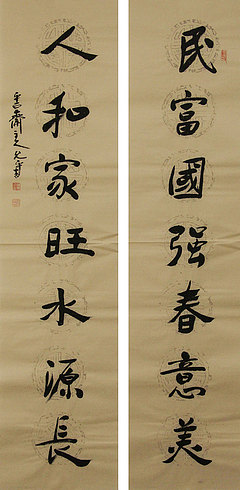 民富國強春意美
人和家旺水源長